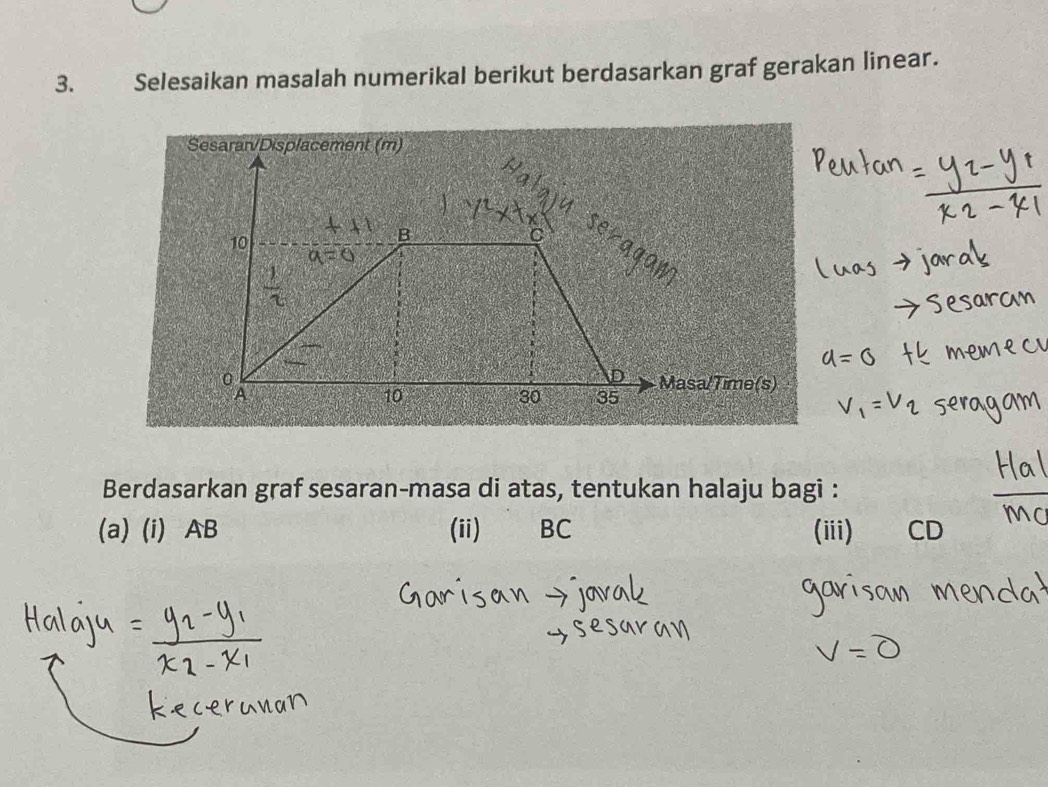 3. Selesaikan masalah numerikal berikut berdasarkan graf gerakan linear.
Sesaran/Displacement (m)
Halaju seragam
a=0
1/2
10
B
C
0
A
10
30
D
35
Masa/Time(s)
= y2-y1
x2-x1
luas → jarak
→ sesaran
a=0 tk
v1=v2 seragam
Berdasarkan graf sesaran-masa di atas, tentukan halaju bagi :
(a) (i) AB (ii) BC (iii) CD
Halaju = y2-y1
x2-x1
kecerunan
Garisan → jarak
→ sesaran
garisan
v=0